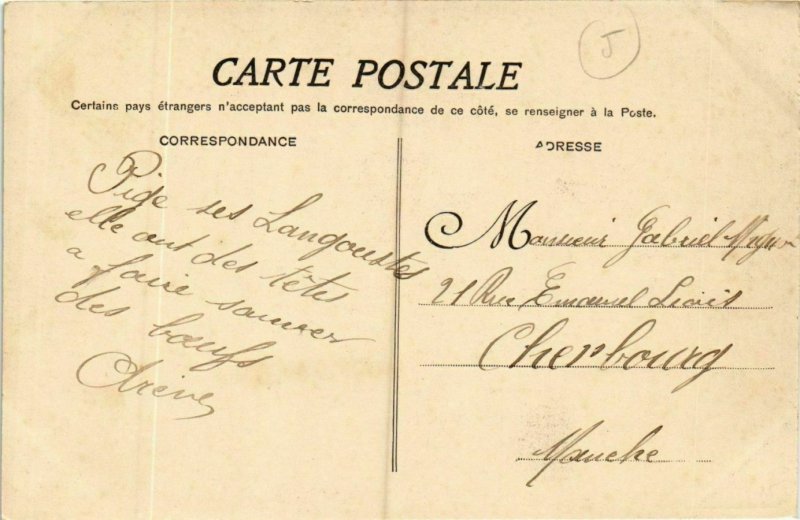 J
CARTE POSTALE
Certains pays étrangers n'acceptant pas la correspondance de ce côté, se renseigner à la Poste.
CORRESPONDANCE
Pige ses Langoustes
elle ont des têtes
a faire sauver
des bœufs
ADRESSE
Monsieur Gabriel
21 Rue Emanuel Liais
Cherbourg
Manche